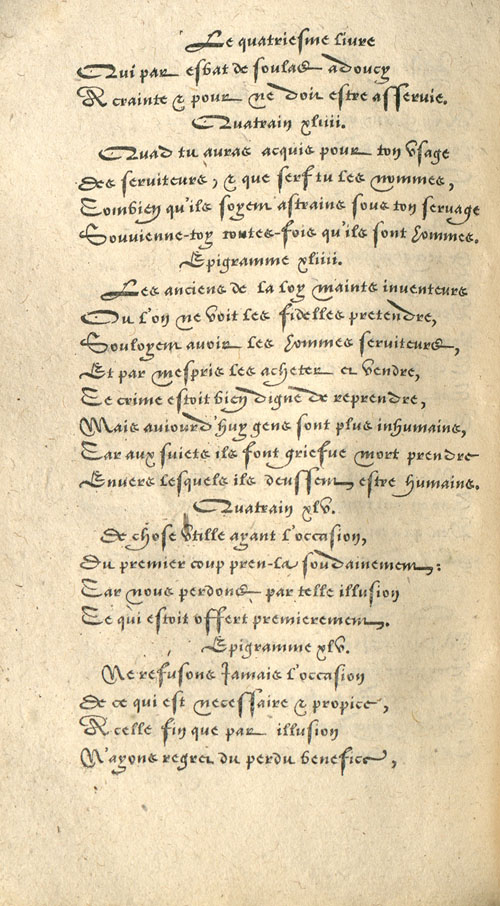 Le quatriesme liure
Qui par esbat de soulas adoucy
A crainte & pour ne doit estre asservie.
Quatrain xliiii.
Quād tu auras acquis pour ton vsage
Des serviteurs, & que serf tu les nommes,
Combien qu'ils soyent astrains sous ton servage
Souvienne-toy toutes-fois qu'ils sont hommes.
Epigramme xliiii.
Les anciens de la loy maints inventeurs
Ou l'on ne voit les fidelles pretendre,
Souloyent avoir les hommes serviteurs,
Et par mespris les acheter et vendre,
Ce crime estoit bien digne de reprendre,
Mais auiourd'huy gens sont plus inhumains,
Car aux suiets ils font griefue mort prendre
Envers lesquels ils deussent estre humains.
Quatrain xlv.
De chose vtille ayant l'occasion,
Du premier coup pren-la soudainement:
Car nous perdons par telle illusion
Ce qui estoit offert premierement.
Epigramme xlv.
Ne refusons Iamais l'occasion
De ce qui est necessaire & propice,
A celle fin que par illusion
N'ayons regret du perdu benefice,